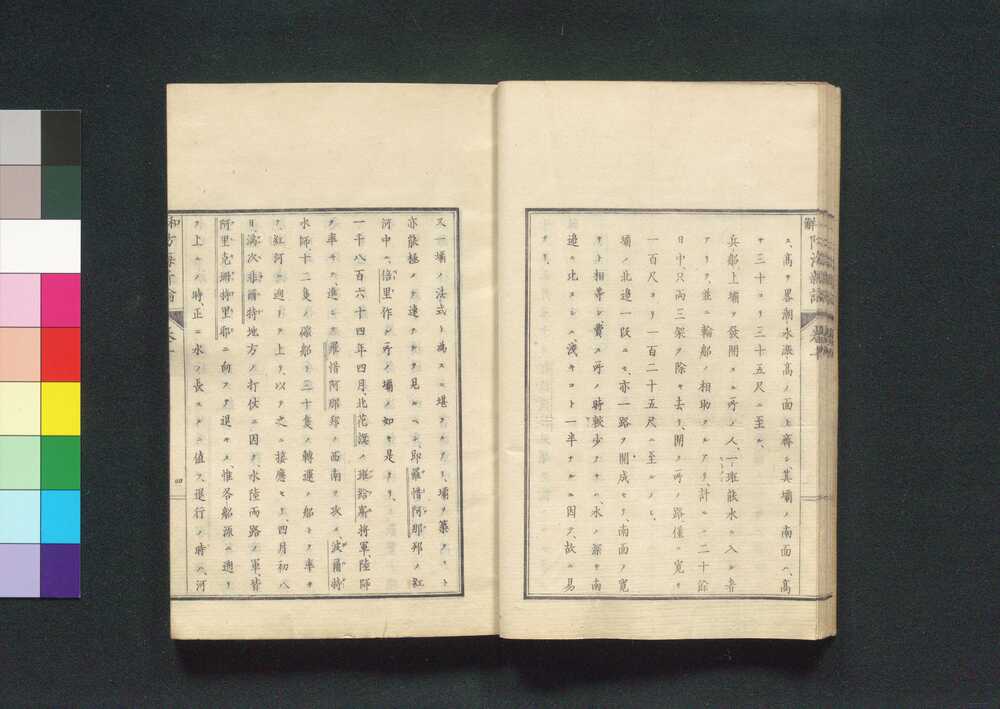 ス、高サ畧潮水漲高ノ面ト齊シ其壩ノ南面ハ、高
サ三十ヨリ三十五尺ニ至ル、
兵船上壩ヲ發開スル所ノ人、一班能水ニ入ル者
アリテ、並ニ輪船ノ相助クルアリ、計ルニ二十餘
日中只兩三架ヲ除キ去リ、開ク所ノ路僅ニ寬サ
一百尺ヨリ一百二十五尺ニ至ルノミ、
壩ノ北邊一段ニモ、亦一路ヲ開成セリ、南面ノ寬
サト相等シ費ス所ノ時較少ナキハ、水ノ深サ南
邊ニ比スレハ淺キコト一半ナルニ因ル、故ニ易
又一壩ノ法式ト為スニ堪タルアリ、壩ヲ築クコト
亦能極メテ速ナルヲ見ルヘシ、耶羅惜阿那邦ノ紅
河中ニ、倍里作ル所ノ壩ノ如キ是ナリ、
一千八百六十四年四月、北花旗ノ班給斯將軍、陸師
ヲ率テ、進ンテ羅惜阿那邦ノ西南ヲ攻ム、波爾特
水師、十二隻ノ礮船ト三十隻ノ轉運ノ船トヲ率テ
テ、紅河ニ遡テ上リ、以テ之ニ接應セリ、四月初八
日、滿次非爾特地方ノ打仗ニ因リ、水陸兩路ノ軍皆
阿里克珊持里耶ニ向テ退キ、惟各船源ニ遡リ
テ上ルノ時、正ニ水ノ長スルニ值フ、退行ノ時ハ、河
四